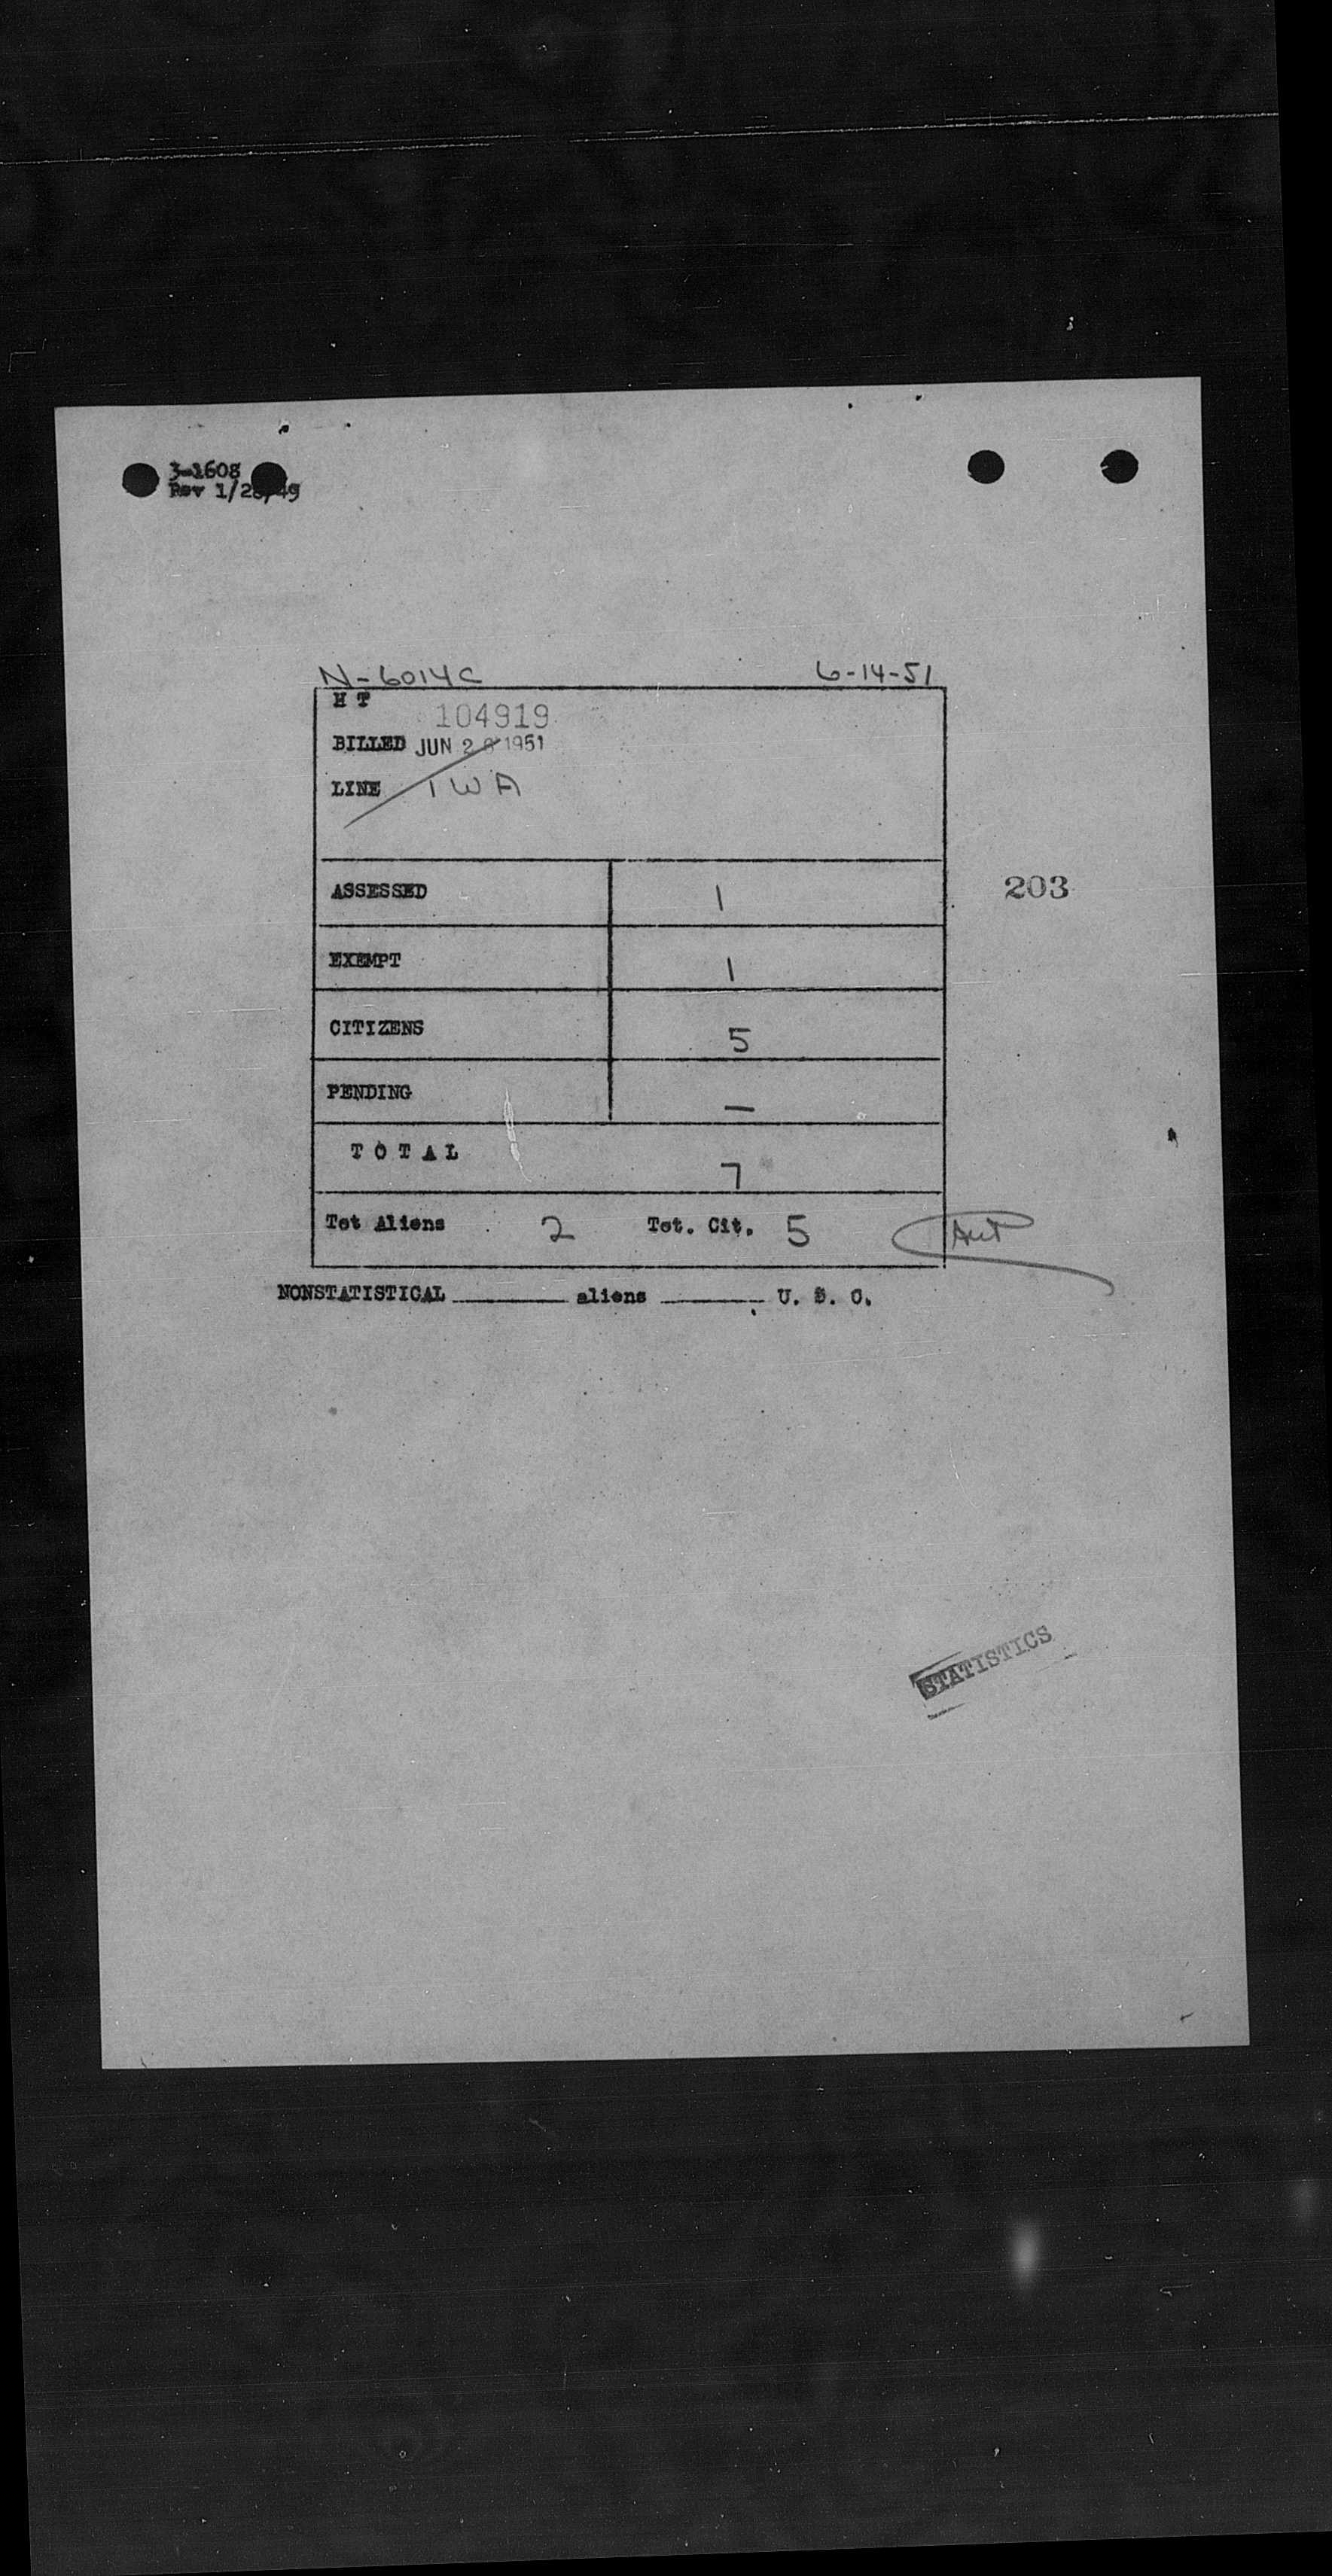 3-1608
Rev 1/28/49
N-6014C 6-14-51
H T
104919
BILLED JUN 28 1951
LINE TWA
203
ASSESSED 1
EXEMPT 1
CITIZENS 5
PENDING —
T O T A L 7
Tot Aliens 2 Tot. Cit. 5
NONSTATISTICAL ________ aliens ________ U. S. C.
STATISTICS